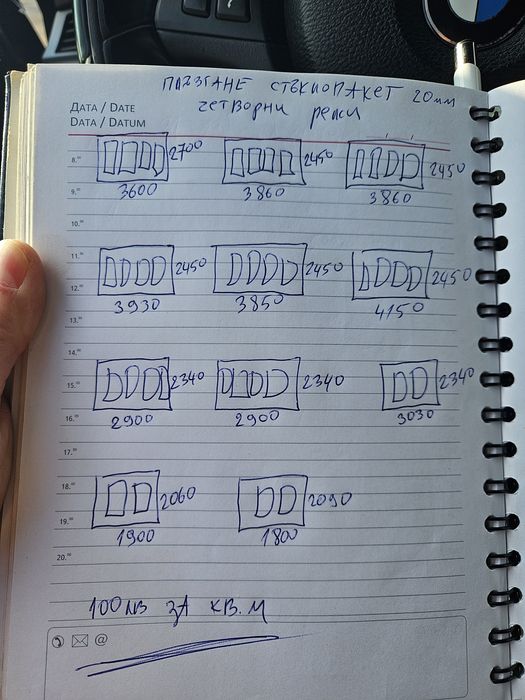 ПЛЪЗГАНЕ СТЪКЛОПАКЕТ 20мм
четворни релси
ДАТА / DATE
DATA / DATUM
8.⁰⁰ 2700 2450 2450
9.⁰⁰ 3600 3860 3860
10.⁰⁰
11.⁰⁰ 2450 2450 2450
12.⁰⁰ 3930 3850 4150
13.⁰⁰
14.⁰⁰
15.⁰⁰ 2340 2340 2340
16.⁰⁰ 2900 2900 3030
17.⁰⁰
18.⁰⁰ 2060 2090
19.⁰⁰ 1900 1800
20.⁰⁰
100 лв ЗА КВ. М
@